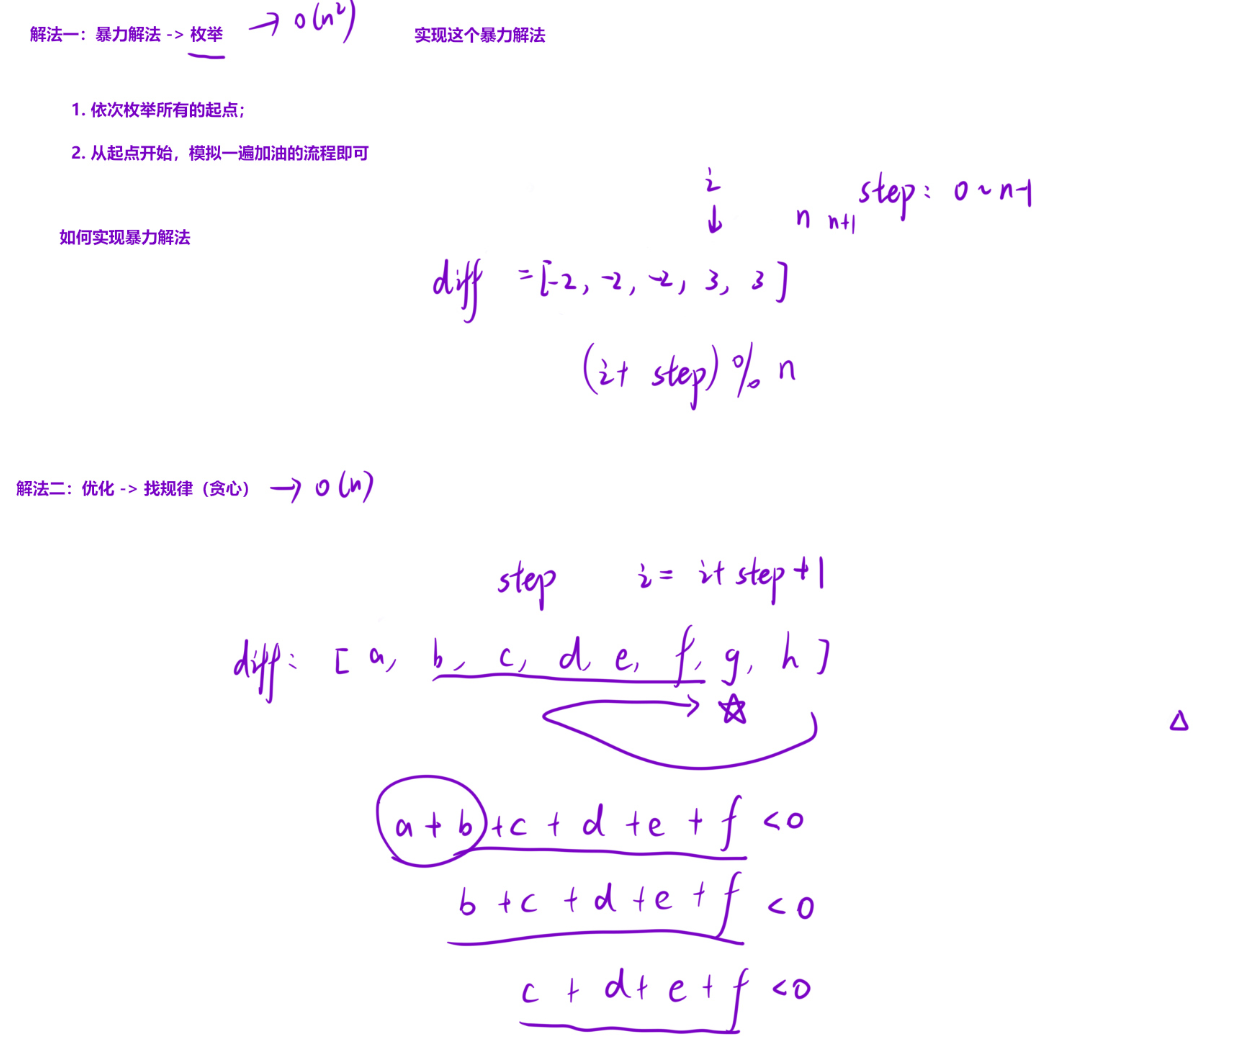 解法一：暴力解法 -> 枚举 → O(n²) 实现这个暴力解法
1. 依次枚举所有的起点；
2. 从起点开始，模拟一遍加油的流程即可
i
n n+1 step: 0 ~ n-1
如何实现暴力解法
diff = [-2, -2, -2, 3, 3]
(i+ step) % n
解法二：优化 -> 找规律（贪心） → O(n)
step i = i+ step +1
diff: [a, b, c, d, e, f, g, h]
a + b + c + d + e + f < 0
b + c + d + e + f < 0
c + d + e + f < 0